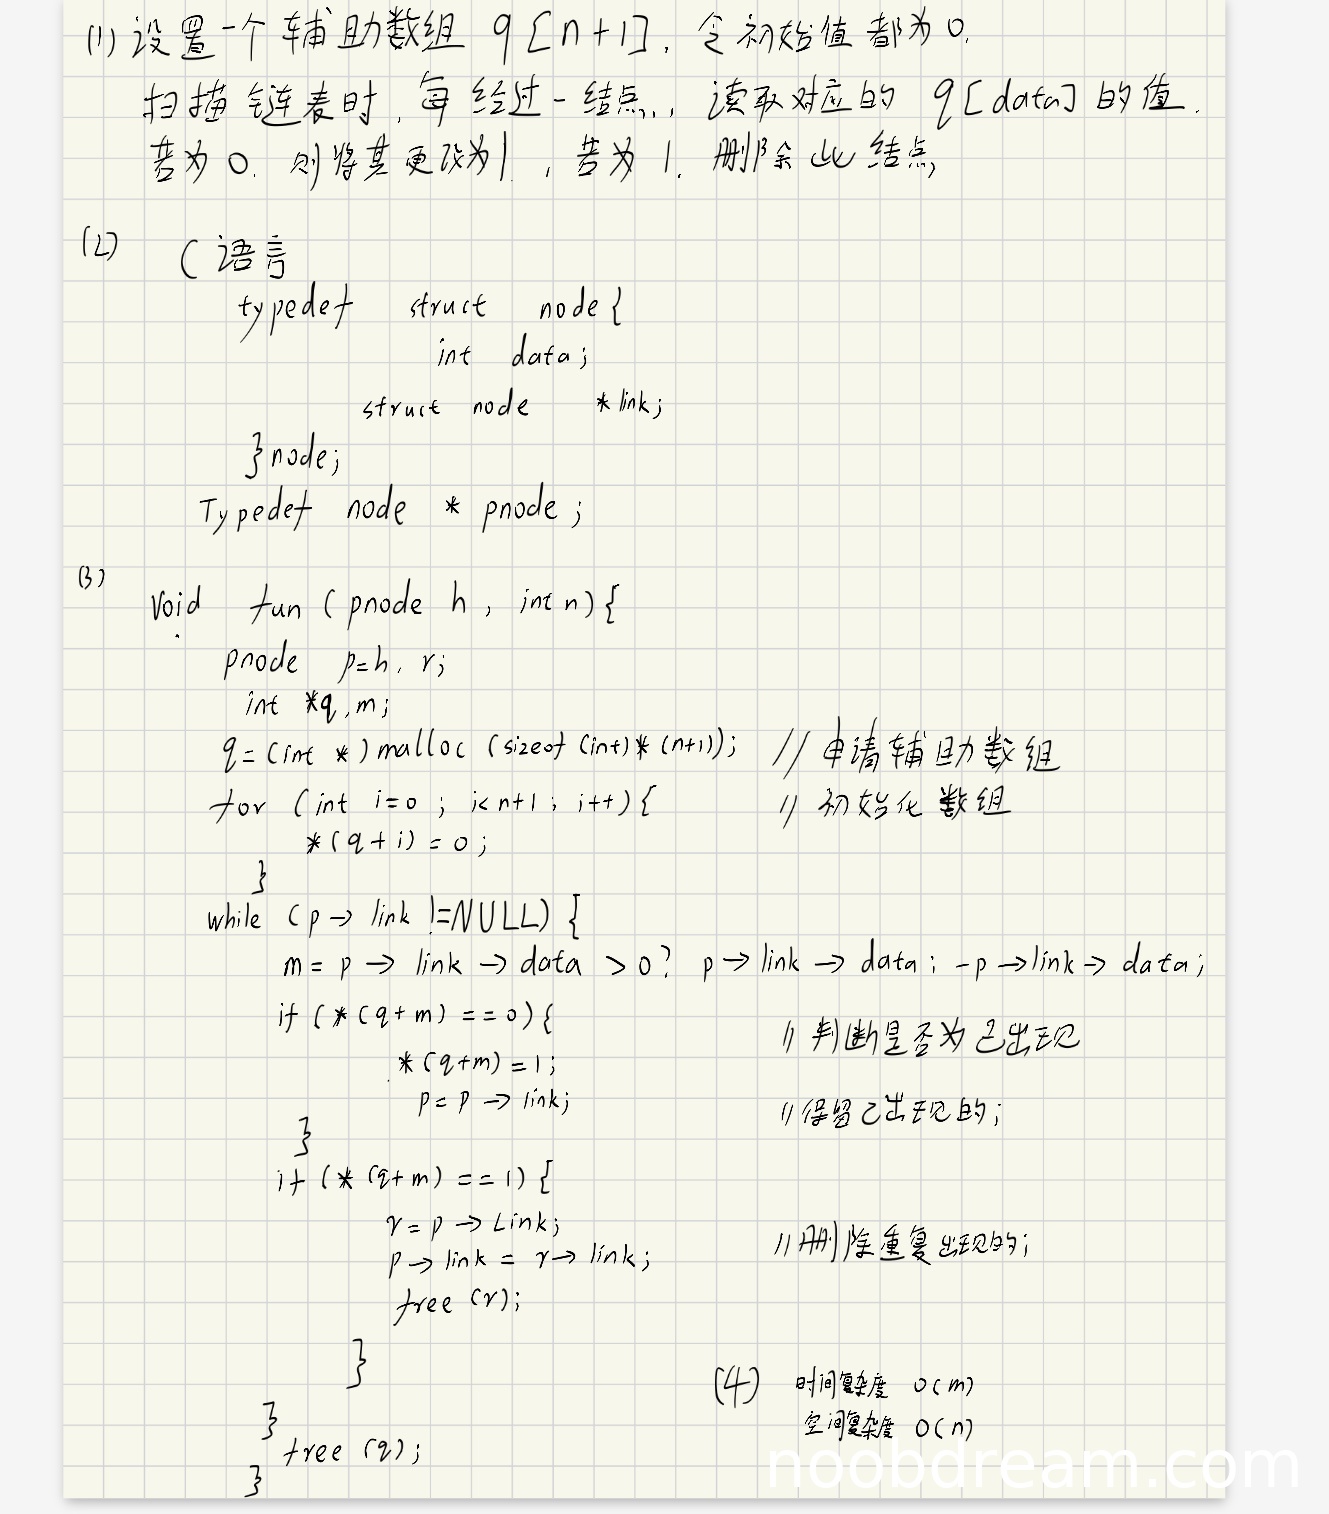 (1) 设置一个辅助数组 q[n+1], 令初始值都为0.
扫描链表时, 每经过一结点, 读取对应的 q[data] 的值.
若为0. 则将其更改为1, 若为1. 删除此结点
(2) C语言
typedef struct node{
int data;
struct node *link;
}node;
Typedef node * pnode;
(3)
Void fun (pnode h, int n){
pnode p=h, r;
int *q,m;
q=(int *)malloc (sizeof(int)*(n+1)); //申请辅助数组
for (int i=0; i<n+1; i++){ //初始化数组
*(q+i)=0;
}
while (p→link !=NULL){
m= p→link→data >0? p→link→data: -p→link→data;
if (*(q+m)==0){ //判断是否为已出现
*(q+m)=1;
p=p→link; //保留已出现的;
}
if (*(q+m)==1){
r=p→Link;
p→link = r→link; //删除重复出现的;
free(r);
}
}
free(q);
}
(4) 时间复杂度 O(m)
空间复杂度 O(n)
noobdream.com